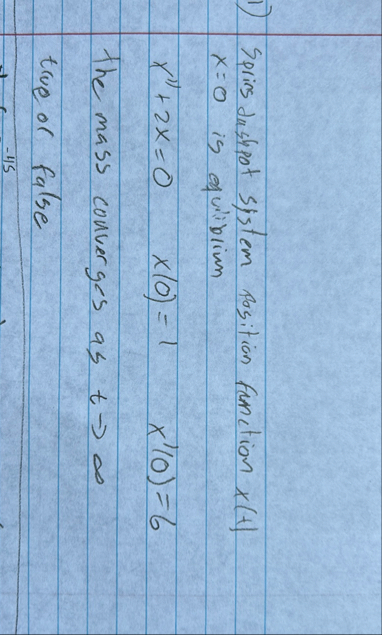 1) Spring dashpot system position function x(t)
x=0 is equilibrium
x'' + 2x = 0 x(0) = 1 x'(0) = 6
the mass converges as t → ∞
true or false
-4/5